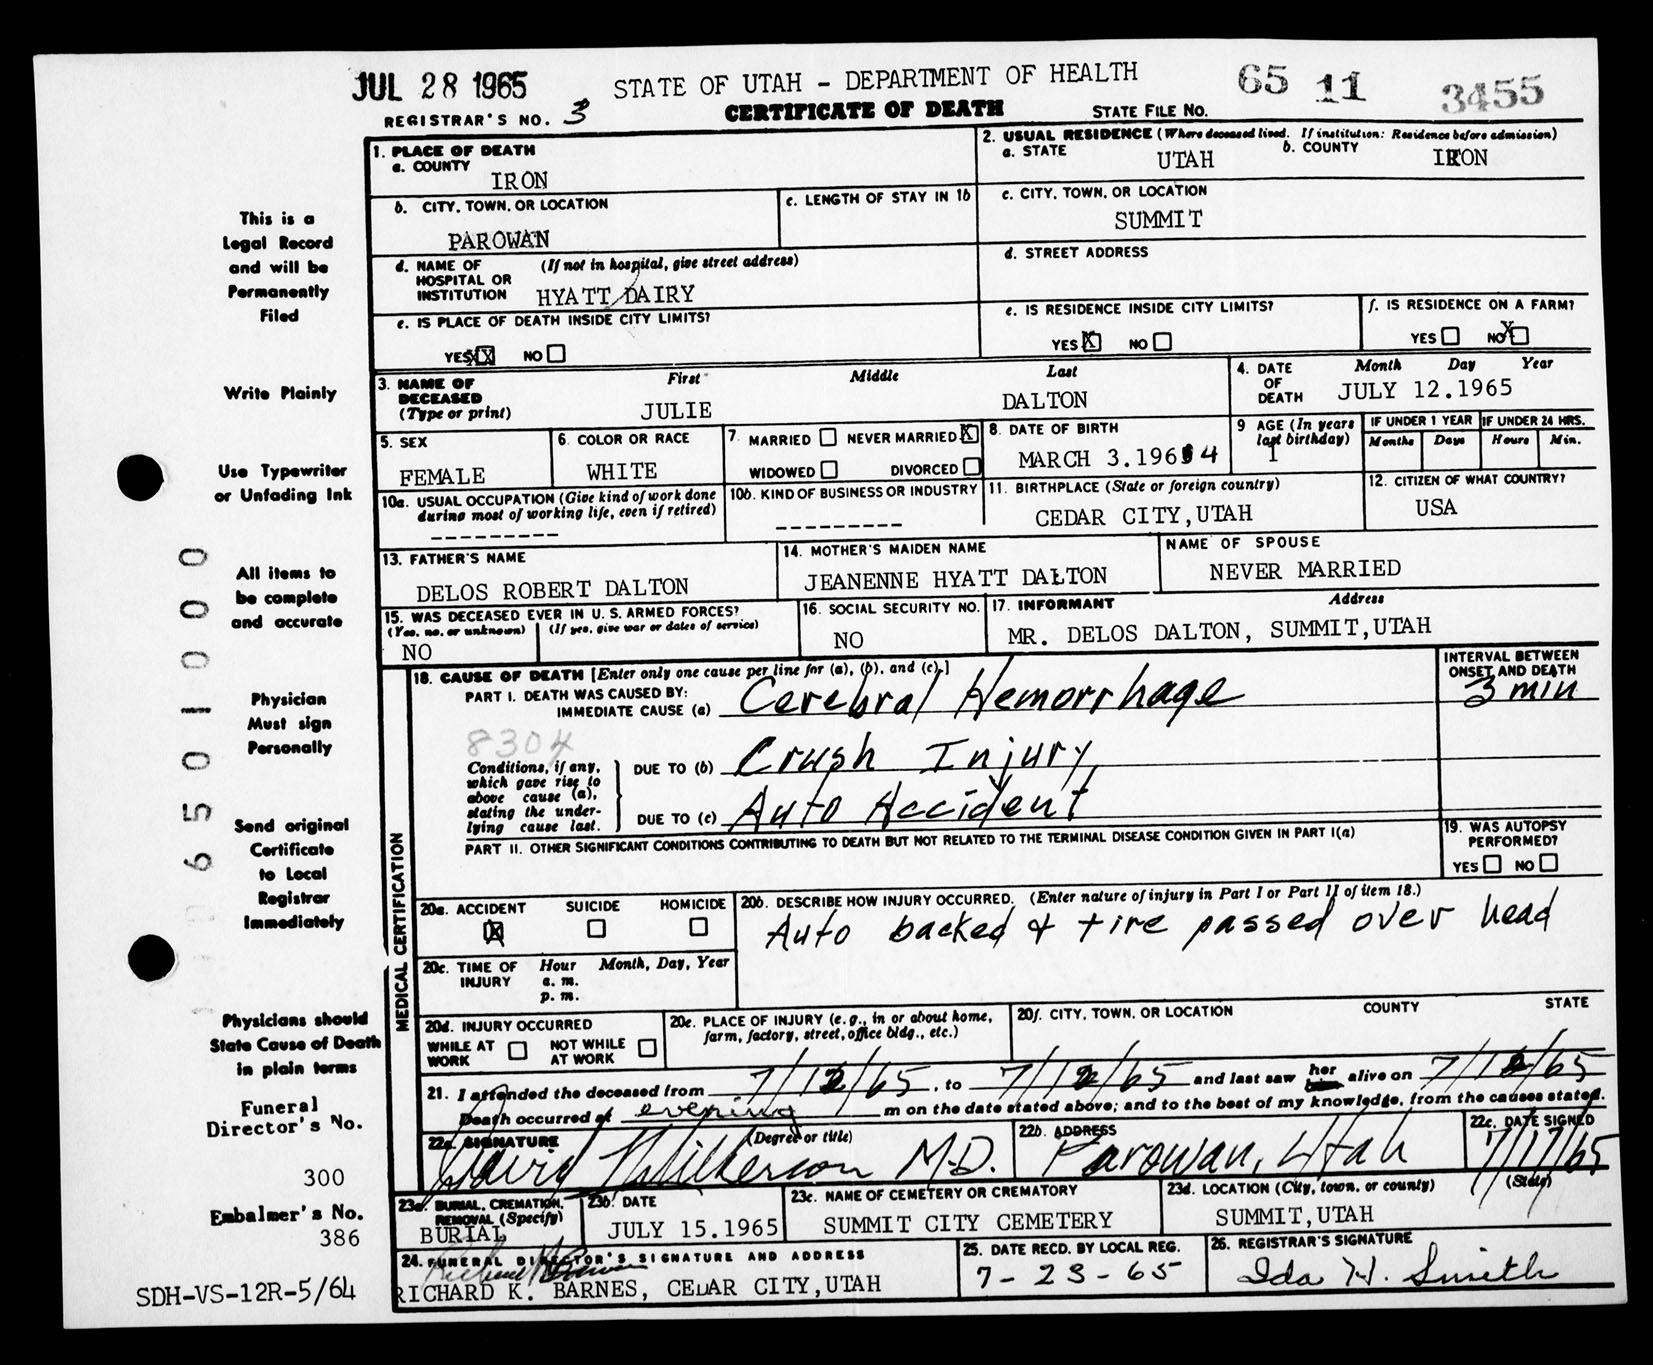 JUL 28 1965
STATE OF UTAH – DEPARTMENT OF HEALTH
65 11 3455
REGISTRAR'S NO. 3
CERTIFICATE OF DEATH
STATE FILE NO.
This is a
Legal Record
and will be
Permanently
Filed
Write Plainly
Use Typewriter
or Unfading Ink
All items to
be complete
and accurate
Physician
Must sign
Personally
Send original
Certificate
to Local
Registrar
Immediately
Physicians should
State Cause of Death
in plain terms
Funeral
Director's No.
300
Embalmer's No.
386
SDH-VS-12R-5/64
65 01 000
1. PLACE OF DEATH
a. COUNTY
IRON
2. USUAL RESIDENCE (Where deceased lived. If institution: Residence before admission)
a. STATE UTAH b. COUNTY IRON
b. CITY, TOWN, OR LOCATION
PAROWAN
c. LENGTH OF STAY IN 1b
c. CITY, TOWN, OR LOCATION
SUMMIT
d. NAME OF HOSPITAL OR INSTITUTION (If not in hospital, give street address)
HYATT DAIRY
d. STREET ADDRESS
e. IS PLACE OF DEATH INSIDE CITY LIMITS?
YES XX NO
e. IS RESIDENCE INSIDE CITY LIMITS?
YES X NO
f. IS RESIDENCE ON A FARM?
YES NO X
3. NAME OF DECEASED (Type or print)
First Middle Last
JULIE DALTON
4. DATE OF DEATH
Month Day Year
JULY 12.1965
5. SEX
FEMALE
6. COLOR OR RACE
WHITE
7. MARRIED NEVER MARRIED X
WIDOWED DIVORCED
8. DATE OF BIRTH
MARCH 3.1964
9 AGE (In years last birthday)
1
IF UNDER 1 YEAR
Months Days
IF UNDER 24 HRS.
Hours Min.
10a. USUAL OCCUPATION (Give kind of work done during most of working life, even if retired)
----------
10b. KIND OF BUSINESS OR INDUSTRY
----------
11. BIRTHPLACE (State or foreign country)
CEDAR CITY, UTAH
12. CITIZEN OF WHAT COUNTRY?
USA
13. FATHER'S NAME
DELOS ROBERT DALTON
14. MOTHER'S MAIDEN NAME
JEANENNE HYATT DALTON
NAME OF SPOUSE
NEVER MARRIED
15. WAS DECEASED EVER IN U. S. ARMED FORCES?
(Yes, no, or unknown) (If yes, give war or dates of service)
NO
16. SOCIAL SECURITY NO.
NO
17. INFORMANT Address
MR. DELOS DALTON, SUMMIT, UTAH
MEDICAL CERTIFICATION
18. CAUSE OF DEATH [Enter only one cause per line for (a), (b), and (c).]
PART I. DEATH WAS CAUSED BY:
IMMEDIATE CAUSE (a) Cerebral Hemorrhage
INTERVAL BETWEEN ONSET AND DEATH
3 min
8304
Conditions, if any, which gave rise to above cause (a), stating the underlying cause last.
DUE TO (b) Crush Injury
DUE TO (c) Auto Accident
PART II. OTHER SIGNIFICANT CONDITIONS CONTRIBUTING TO DEATH BUT NOT RELATED TO THE TERMINAL DISEASE CONDITION GIVEN IN PART I(a)
19. WAS AUTOPSY PERFORMED?
YES NO
20a. ACCIDENT SUICIDE HOMICIDE
X
20b. DESCRIBE HOW INJURY OCCURRED. (Enter nature of injury in Part I or Part II of item 18.)
Auto backed & tire passed over head
20c. TIME OF INJURY
Hour Month, Day, Year
a. m.
p. m.
20d. INJURY OCCURRED
WHILE AT WORK NOT WHILE AT WORK
20e. PLACE OF INJURY (e.g., in or about home, farm, factory, street, office bldg., etc.)
20f. CITY, TOWN, OR LOCATION COUNTY STATE
21. I attended the deceased from 7/12/65, to 7/12/65 and last saw her him alive on 7/12/65
Death occurred at evening m on the date stated above; and to the best of my knowledge, from the causes stated.
22a. SIGNATURE (Degree or title)
David Wilkerson M.D.
22b. ADDRESS
Parowan, Utah
22c. DATE SIGNED
7/17/65
23a. BURIAL, CREMATION, REMOVAL (Specify)
BURIAL
23b. DATE
JULY 15.1965
23c. NAME OF CEMETERY OR CREMATORY
SUMMIT CITY CEMETERY
23d. LOCATION (City, town, or county) (State)
SUMMIT, UTAH
24. FUNERAL DIRECTOR'S SIGNATURE AND ADDRESS
RICHARD K. BARNES, CEDAR CITY, UTAH
25. DATE RECD. BY LOCAL REG.
7-23-65
26. REGISTRAR'S SIGNATURE
Ida H. Smith